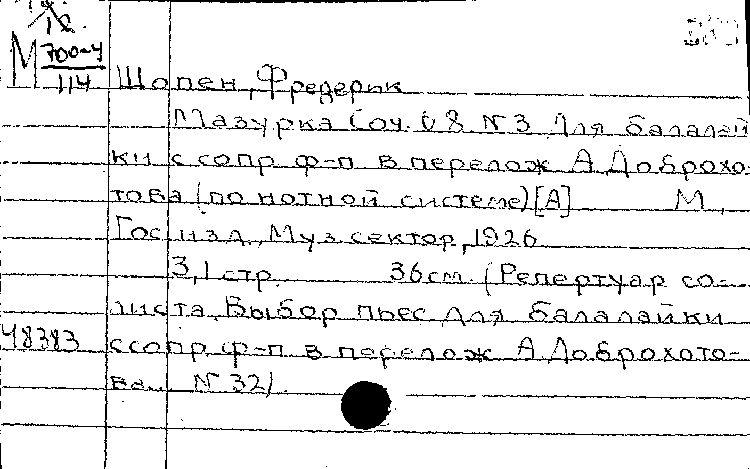 М 700-4
114
Шопен, Фредерик
Мазурка Соч. 68 N 3 Для балалай
ки с сопр ф-п в перелож А. Доброхо-
това (по нотной системе) [А] М,
Гос изд., Муз сектор, 1926
3,1 стр. 36 см. (Репертуар со-
листа. Выбор пьес для балалайки
48383 с сопр ф-п в перелож А Доброхото-
ва... N 32)